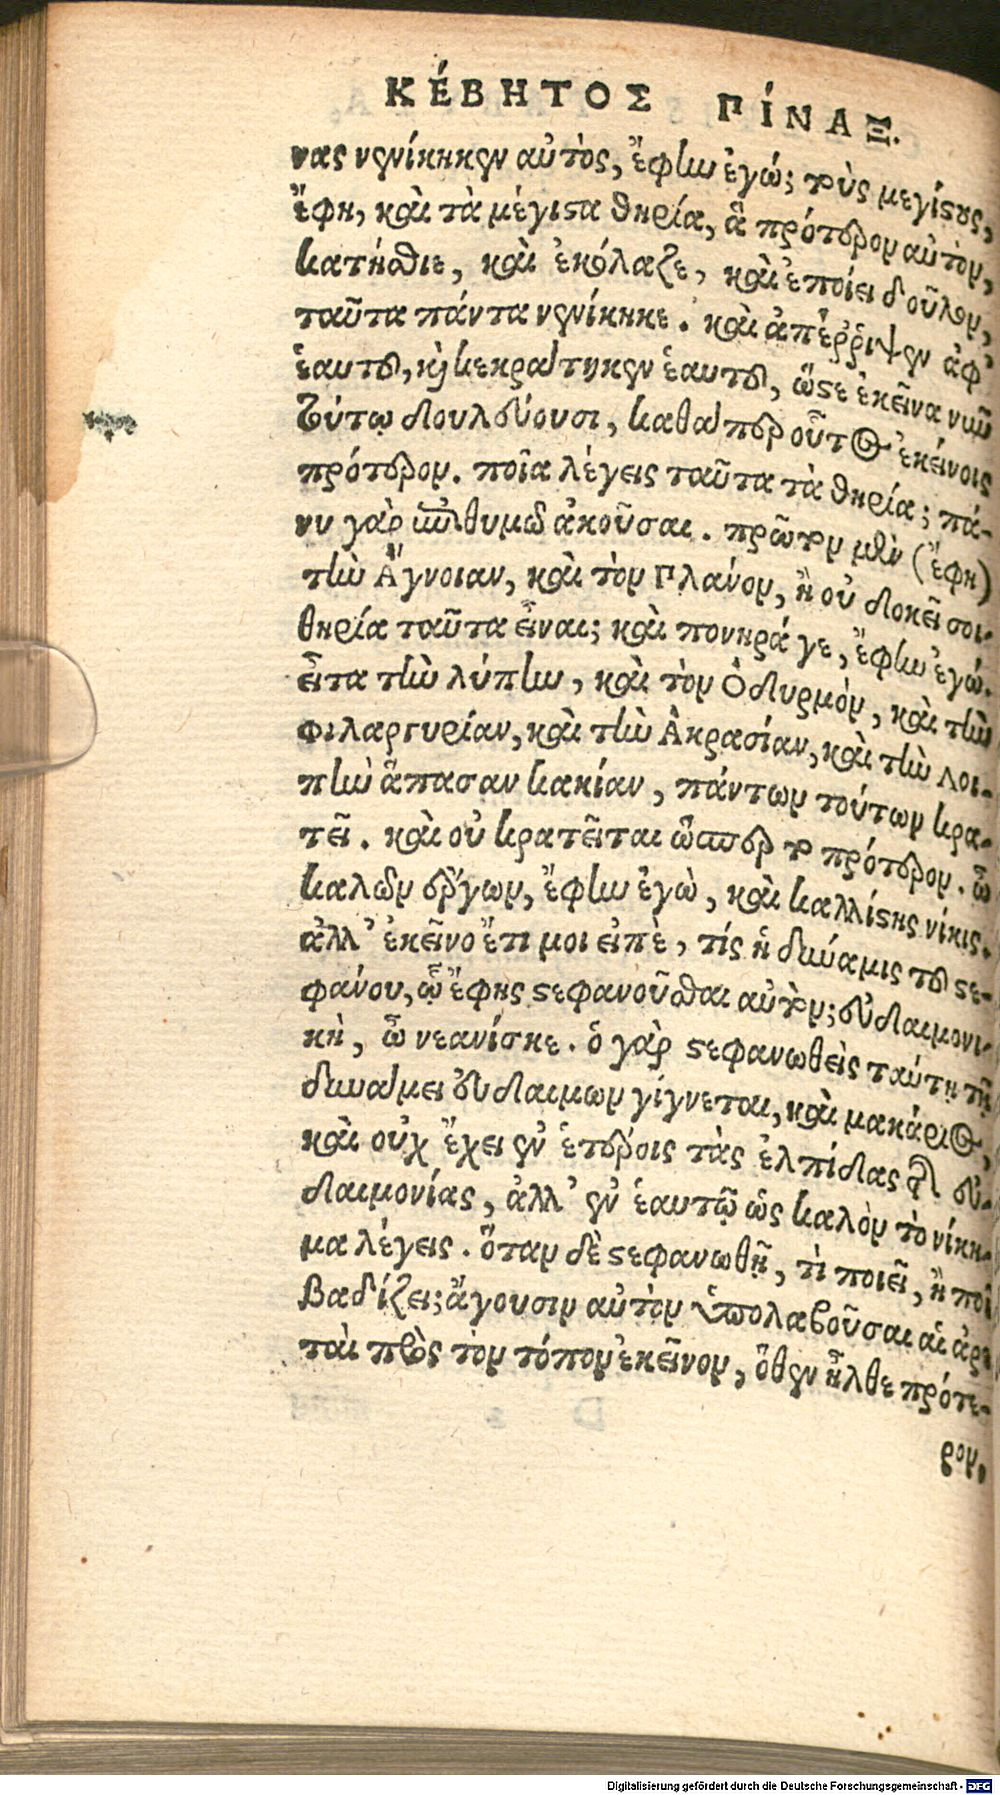 ΚΈΒΗΤΟΣ ΠΊΝΑΞ.
νας νενίκηκεν αὐτὸς, ἔφην ἐγώ; τοὺς μεγίστους,
ἔφη, καὶ τὰ μέγιστα θηρία, ἃ πρότερον αὐτὸν,
κατήσθιε, καὶ ἐκόλαζε, καὶ ἐποίει δοῦλον,
ταῦτα πάντα νενίκηκε. καὶ ἀπέῤῥιψεν ἀφ’
ἑαυτοῦ, καὶ κεκράτηκεν ἑαυτοῦ, ὥστε ἐκεῖνα νῦν
τούτῳ δουλεύουσι, καθάπερ οὗτος ἐκείνοις
πρότερον. ποῖα λέγεις ταῦτα τὰ θηρία; πά-
νυ γὰρ ἐπιθυμῶ ἀκοῦσαι. πρῶτον μὲν (ἔφη)
τὴν Ἄγνοιαν, καὶ τὸν Πλάνον, ἢ οὐ δοκεῖ σοι
θηρία ταῦτα εἶναι; καὶ πονηρά γε, ἔφην ἐγώ.
εἶτα τὴν λύπην, καὶ τὸν Ὀδυρμὸν, καὶ τὴν
φιλαργυρίαν, καὶ τὴν Ἀκρασίαν, καὶ τὴν λοι-
πὴν ἅπασαν κακίαν, πάντων τούτων κρα-
τεῖ. καὶ οὐ κρατεῖται ὥσπερ τὸ πρότερον. ὢ
καλῶν ἔργων, ἔφην ἐγὼ, καὶ καλλίστης νίκης.
ἀλλ’ ἐκεῖνο ἔτι μοι εἰπὲ, τίς ἡ δύναμις τοῦ στε-
φάνου, ᾧ ἔφης στεφανοῦσθαι αὐτόν; εὐδαιμονι-
κὴ, ὦ νεανίσκε. ὁ γὰρ στεφανωθεὶς ταύτῃ τῇ
δυνάμει εὐδαίμων γίγνεται, καὶ μακάριος,
καὶ οὐχ ἔχει ἐν ἑτέροις τὰς ἐλπίδας τῆς εὐ-
δαιμονίας, ἀλλ’ ἐν ἑαυτῷ ὡς καλὸν τὸ νίκη-
μα λέγεις. ὅταν δὲ στεφανωθῇ, τί ποιεῖ, ἢ ποῖ
βαδίζει; ἄγουσιν αὐτὸν ὑπολαβοῦσαι αἱ ἀρε
ταὶ πρὸς τὸν τόπον ἐκεῖνον, ὅθεν ἦλθε πρότε-
ρον,
Digitalisierung gefördert durch die Deutsche Forschungsgemeinschaft - DFG